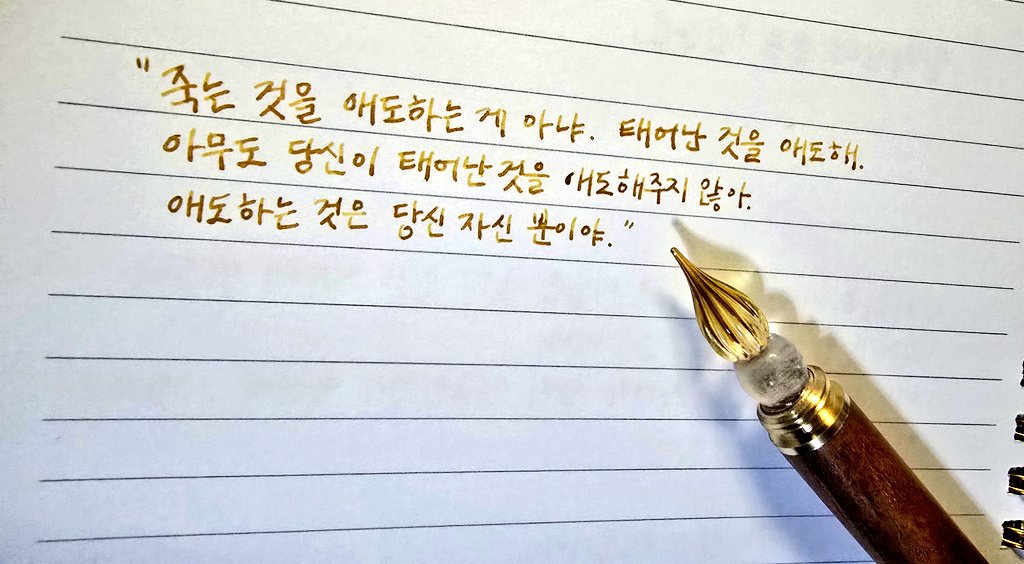 "죽는 것을 애도하는 게 아냐. 태어난 것을 애도해.
아무도 당신이 태어난 것을 애도해주지 않아.
애도하는 것은 당신 자신 뿐이야."